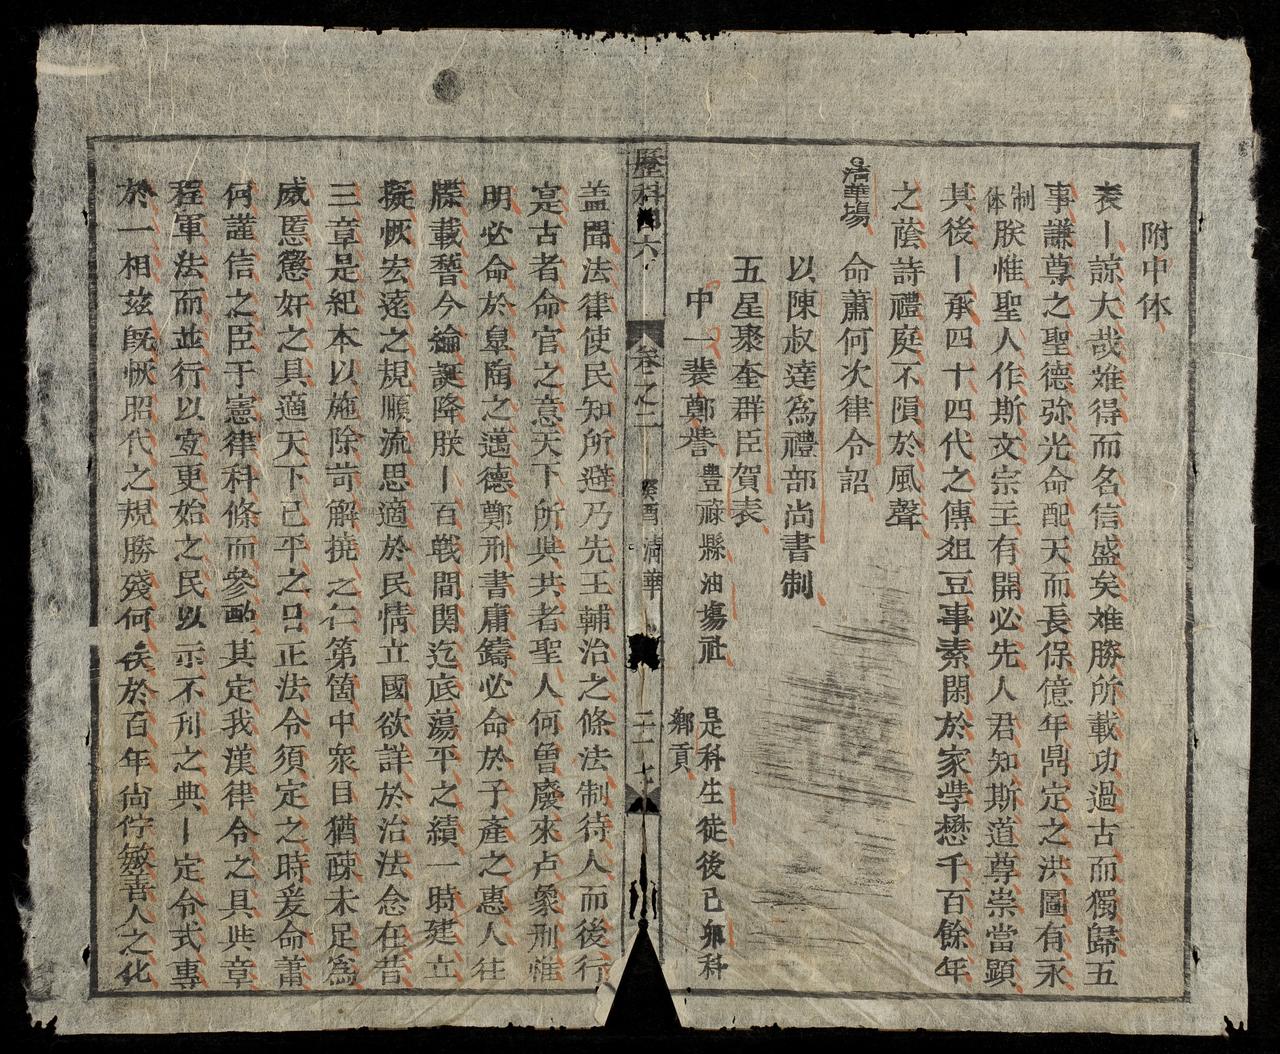 附中体
表丨諒大哉难得而名信盛矣难勝所載功過古而獨歸五
事謙尊之聖德弥光命配天而長保億年鼎定之洪圖有永
制体朕惟聖人作斯文宗王有開必先人君知斯道尊崇當顕
其後丨承四十四代之傳俎豆事素閑於家斈懋千百餘年
之蔭詩禮庭不隕於風聲
清華場 命蕭何次律令詔
以陳叔達為禮部尚書制
五星聚奎群臣賀表
中一裴鄭 豊祿縣油塲社
是科生徒後己卯科
鄉貢
歷科 六
卷之二
癸酉 清華
二十七
盖聞法律使民知所避乃先王輔治之條法制待人而後行
寔古者命官之意天下所與共者聖人何曽廢來占象刑惟
明必命於臯陶之邁德鄭刑書庸鑄必命於子產之惠人往
牒載稽今綸誕降朕丨百戦間関迄底蕩平之績一時建立
擬恢宏遠之規順流思適於民情立國欲詳於治法念在昔
三章是紀本以施除苛解撓之仁第箇中衆目猶疎未足為
威慝懲奸之具適天下已平之日正法令須定之時爰命蕭
何謹信之臣于憲律科條而參酌其定我漢律令之具與章
程軍法而並行以宜更始之民以示不刊之典丨定令式專
於一相茲既恢昭代之規勝殘何俟於百年尚佇敏善人之化